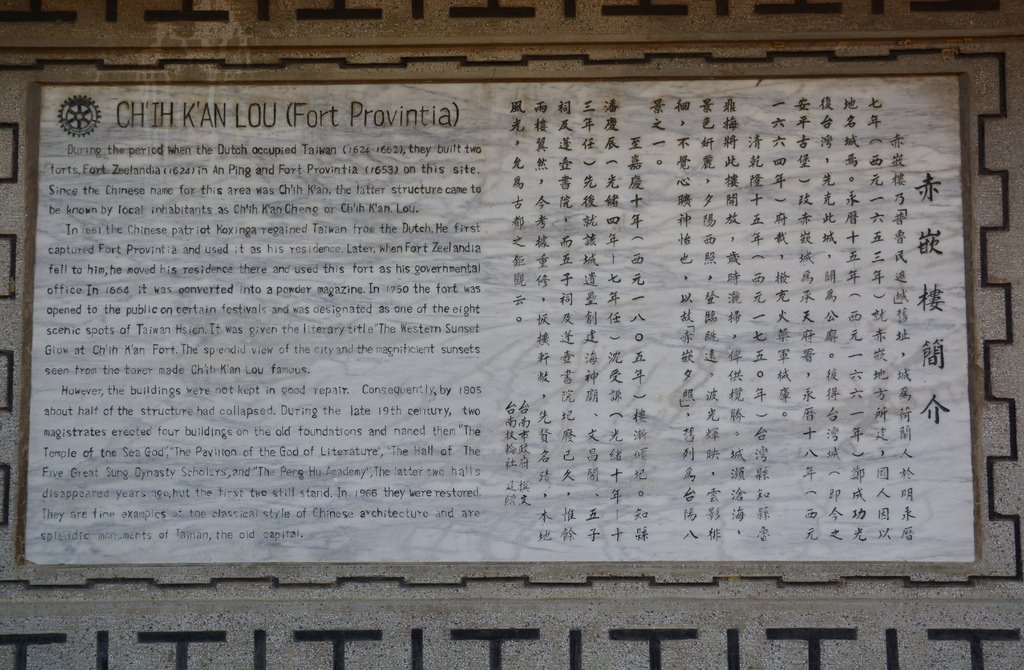 CH'IH K'AN LOU (Fort Provintia)
During the period when the Dutch occupied Taiwan (1624-1662), they built two
forts, Fort Zeelandia (1624) in An Ping and Fort Provintia (1653) on this site.
Since the Chinese name for this area was Ch'ih K'an, the latter structure came to
be known by local inhabitants as Ch'ih K'an Cheng or Ch'ih K'an Lou.
In 1661 the Chinese patriot Koxinga regained Taiwan from the Dutch. He first
captured Fort Provintia and used it as his residence. Later, when Fort Zeelandia
fell to him, he moved his residence there and used this fort as his governmental
office. In 1664 it was converted into a powder magazine. In 1750 the fort was
opened to the public on certain festivals and was designated as one of the eight
scenic spots of Taiwan Hsien. It was given the literary title "The Western Sunset
Glow at Ch'ih K'an Fort." The splendid view of the city and the magnificient sunsets
seen from the tower made Ch'ih K'an Lou famous.
However, the buildings were not kept in good repair. Consequently, by 1805
about half of the structure had collapsed. During the late 19th century, two
magistrates erected four buildings on the old foundations and named them "The
Temple of the Sea God", "The Pavilion of the God of Literature", "The Hall of The
Five Great Sung Dynasty Scholars", and "The Peng Hu Academy". The latter two halls
disappeared years ago, but the first two still stand. In 1966 they were restored.
They are fine examples of the classical style of Chinese architecture and are
splendid monuments of Tainan, the old capital.
赤嵌樓簡介
赤嵌樓乃普魯民遮城舊址，城為荷蘭人於明永曆
七年（西元一六五三年）就赤嵌地方所建，國人因以
地名城焉。永曆十五年（西元一六六一年）鄭成功光
復台灣，先克此城，開為公廨。後得台灣城（即今之
安平古堡）改赤嵌城為承天府署，永曆十八年（西元
一六六四年）府裁，撥充火藥軍械庫。
清乾隆十五年（西元一七五〇年）台灣縣知縣魯
鼎梅將此樓開放，歲時灑掃，俾供攬勝。城瀕滄海，
景色妍麗，夕陽西照，登臨眺遠，波光輝映，雲影徘
徊，不覺心曠神怡也，以故「赤嵌夕照」，舊列為台陽八
景之一。
至嘉慶十年（西元一八〇五年）樓漸傾圮。知縣
潘慶辰（光緒四年—七年任）沈受謙（光緒十年—十
三年任）先後就該城遺壘創建海神廟、文昌閣、五子
祠及蓬壺書院，而五子祠及蓬壺書院圮廢已久，惟餘
兩樓翼然，今考據重修，恢樓軒敞，先賢名蹟，本地
風光，允為古都之鉅觀云。
台南市政府 撰文
台南扶輪社 建贈